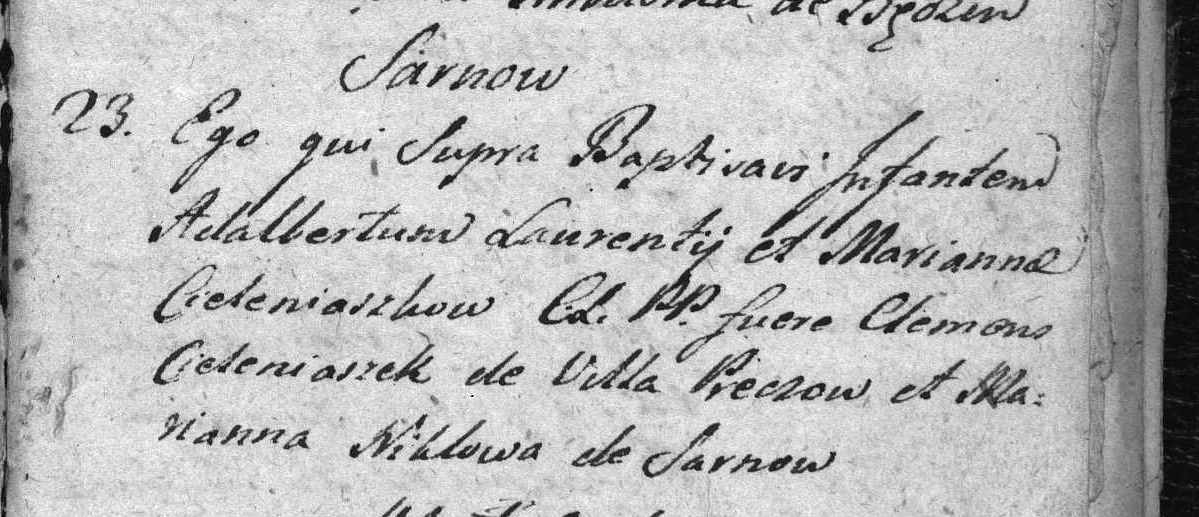 de Będzin
Sarnow
23. Ego qui Supra Baptisavi Infantem
Adalbertum Laurentij et Mariannæ
Cieleniaszkow C.L. PP. fuere Clemens
Cieleniaszek de Villa Preczow et Ma:
rianna Niklowa de Sarnow